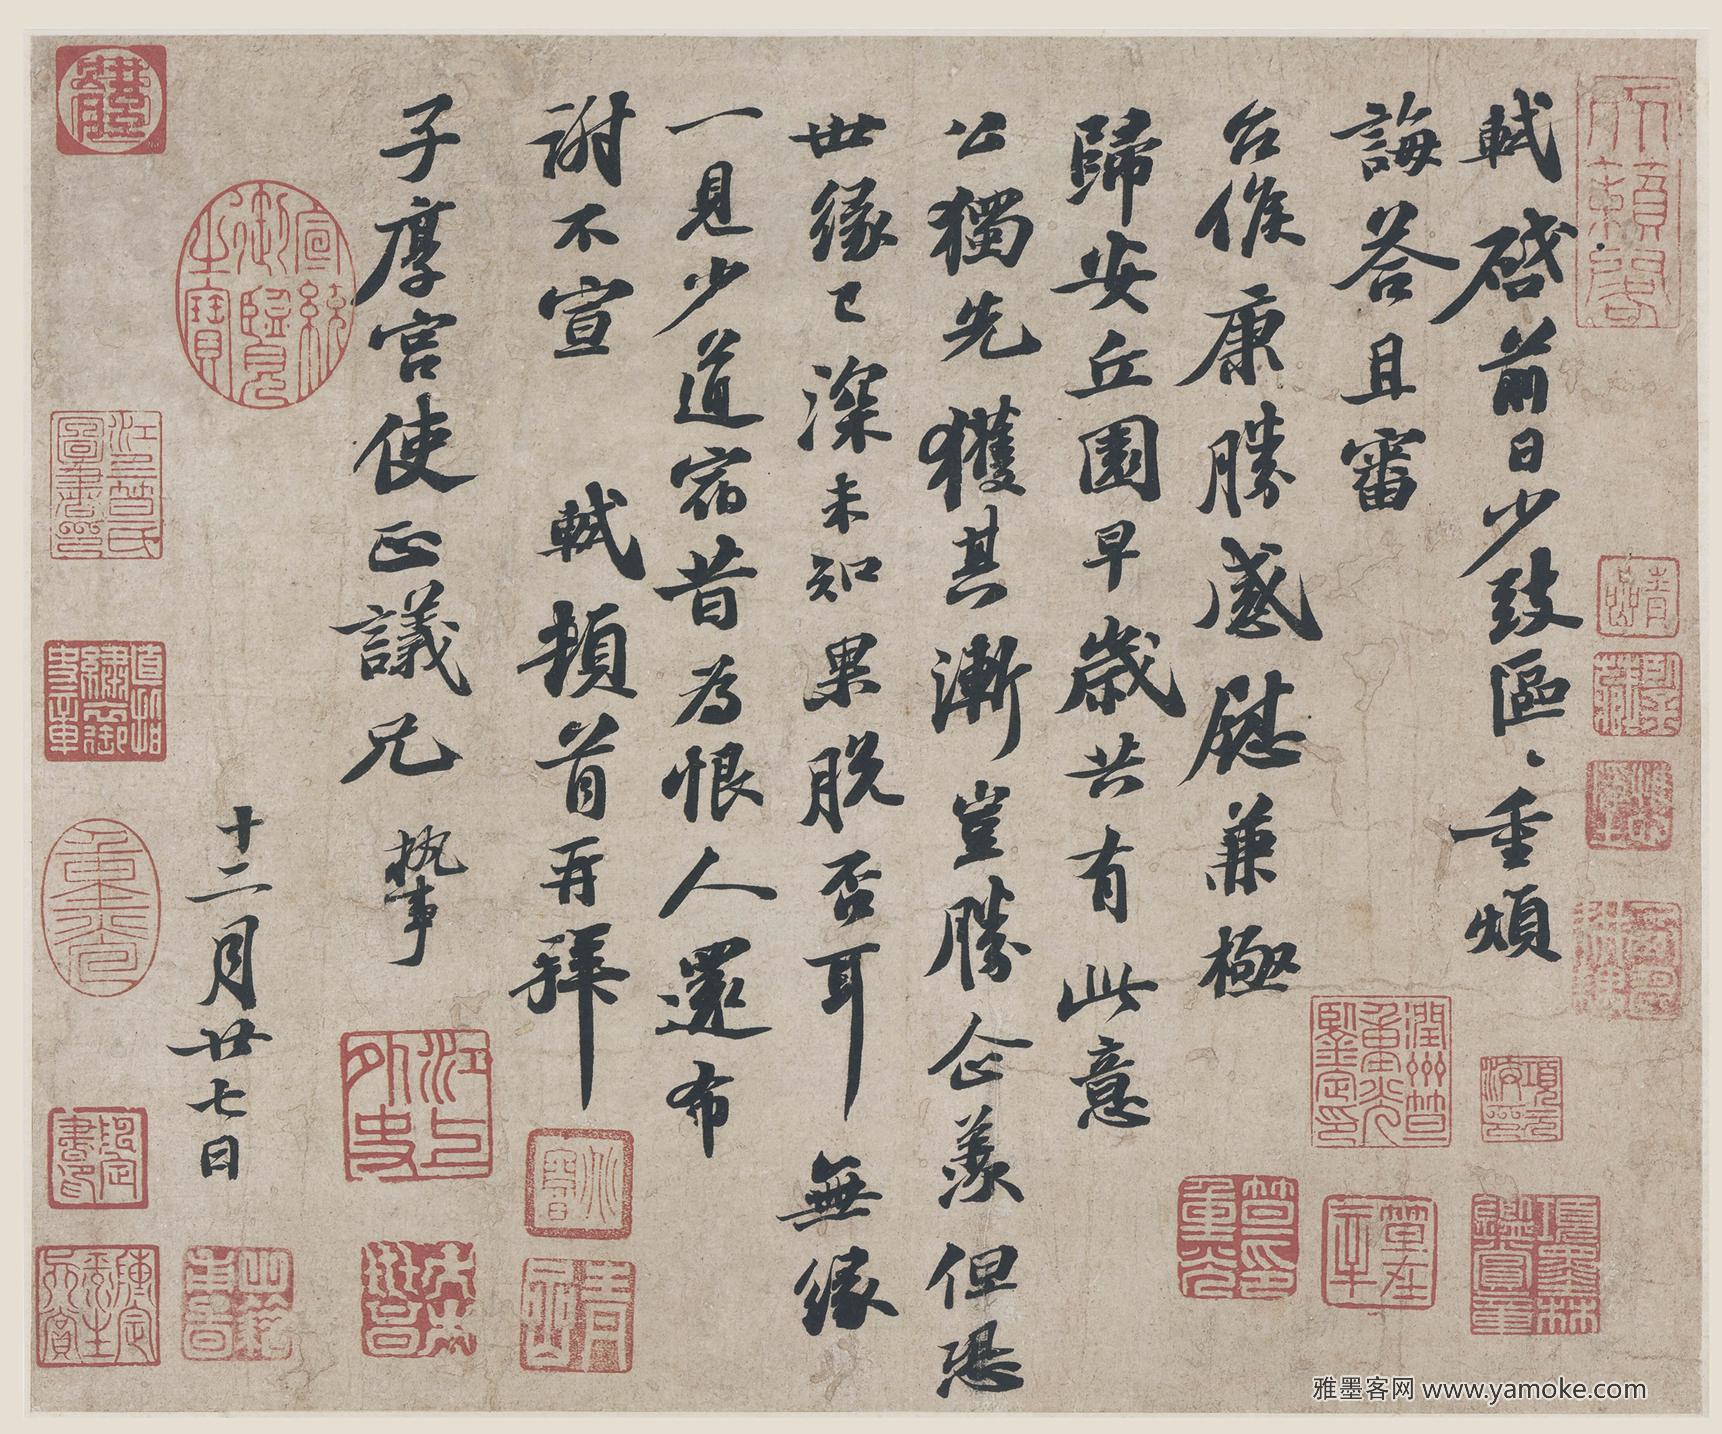 軾啓前日少致區區重煩
誨荅且審
台候康勝感慰兼極
歸安丘園早歲共有此意
公獨先獲其漸豈勝企羨但恐
世緣已深未知果脫否耳無緣
一見少道宿昔為恨人還布
謝不宣 軾頓首再拜
子厚宮使正議兄 執事
十二月廿七日
宣統御覽之寶
江上外史
雅墨客网 www.yamoke.com